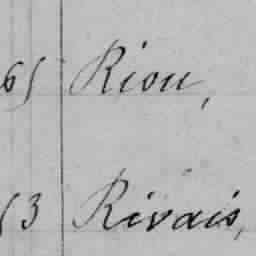 65 Riou,
53 Rivais,